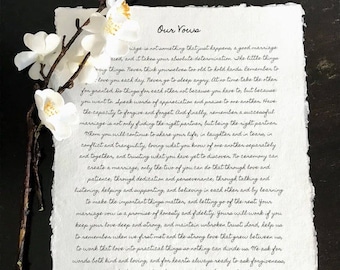 Our Vows
marriage is not something that just happens, a good marriage
and, it takes your absolute determination. The little things
big things. Never think yourselves too old to hold hands. Remember to
love you each day. Never go to sleep angry. At no time take the other
for granted. Do things for each other not because you have to, but because
you want to. Speak words of appreciation and praise to one another. Have
the capacity to forgive and forget. And finally, remember a successful
marriage is not only finding the right partner, but being the right partner.
When you will continue to share your life, in laughter and in tears, in
conflict and tranquility, loving what you know of one another separately
and together, and trusting what you have yet to discover. No ceremony can
create a marriage, only the two of you can do that through love and
patience, through dedication and perseverance, through talking and
listening, helping and supporting, and believing in each other and by learning
to make the important things matter, and letting go of the rest. Your
marriage vow is a promise of honesty and fidelity. Yours will work if you
keep your love deep and strong, and maintain unbroken trust. Lord, help us
to remember when we first met and the strong love that grew between us,
to work that love into practical things so nothing can divide us. We ask for
words both kind and loving, and for hearts always ready to ask forgiveness,